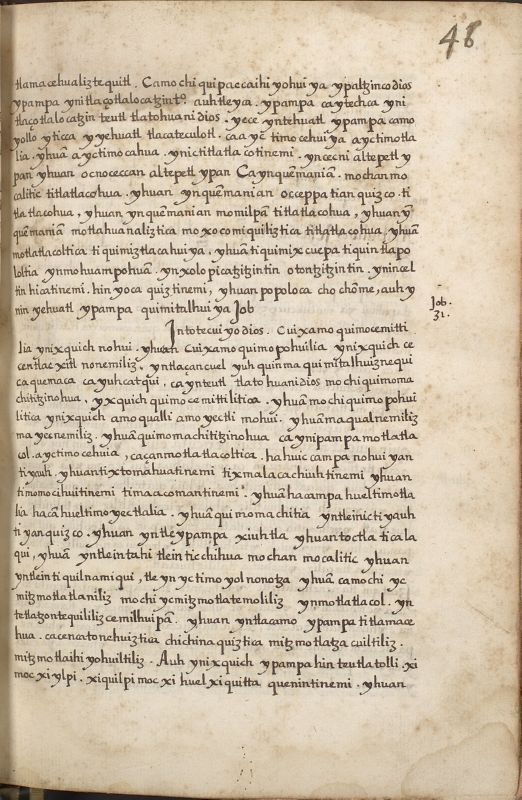 48
tlamacehualiztequitl. Camo chi quipaccaihiyohuiya ypaltzinco dios
ypampa yni tlaçotlalocatzin tº. auh tleyca. ypampa caytechca yni
tlaçotlalocatzin teutl tlatohuani dios. yece yntehuatl ypampa camo
yollo yticca yyehuatl tlacateculotl. caayc timocehuiya ayctimotla
lia. yhuā ayctimocahua. ynic titlatlacotinemi. yncecni altepetl y
pan yhuan ocnoceccan altepetl ypan Caynquemanian. mochan mo
calitic titlatlacohua. yhuan ynquemanian occeppa tianquizco. ti
tlatlacohua, yhuan ynquemanian momilpā titlatlacohua, yhuan yn
quēmaniam motlahuanaliztica moxocomiquiliztica titlatlacohua, yhuā
motlatlacoltica tiquimiztlacahuiya, yhuā tiquimixcuepa tiquintlapo
loltia ynmohuampohuā. ynxolopicatzitzintin otontzitzintin. ynincel
tin hicatinemi. hin yoca quiztinemi, yhuan popoloca chochōme, auh y
nin yehuatl ypampa quimitalhuiya Job
Job.
31.
Intotecuiyo dios. Cuixamo quimocemitti
lia ynixquich nohui. yhuan Cuixamo quimopohuilia ynixquich ce
centlacxitl nonemiliz. yntlacancuel yuh quinma quimitalhuiznequi
caquemaca cayuhcatqui, caynteutl tlatohuani dios mochi quimoma
chitiginohua, yxquich quimocemittilitica. yhuā mochi quimopohui
litica ynixquich amo qualli amo yectli mohui. yhuā maqualnemiliz
mayecnemiliz. yhuā quimomachitiginohua caynipampa motlatla
col. ayc timocehuia, caçanmotlatlacoltica. hahuic campa nohuiyan
tiyauh. yhuan tixtomahuatinemi tixmalacachiuhtinemi yhuan
timomocihuitinemi timaacomantinemi. yhuā hacampa huel timotla
lia hacā huel timoyectlalia. yhuā quimomachitia yntleinic tiyauh
tiyanquizco. yhuan yntleypampa xiuhtla yhuan toctla ticala
qui, yhuā yntlein tahi tlein ticchihua mochan mocalitic yhuan
yntlein tiquilnamiqui, tleyn yc timoyolnonotza yhuā camochi yc
mitzmotlatlaniliz mochi yc mitzmotlatemoliliz ynmotlatlacol. yn
tetlatzontequililizcemilhuipā. yhuan yntlacamo ypampa titlamace
hua. cacencatonehuiztica chichinaquiztica mitzmotlatzacuiltiliz.
mitzmotlaihiyohuiltiliz. Auh ynixquich ypampa hin teutlatolli. xi
mocxiylpi. xiquilpi mocxi huel xiquitta quenintinemi. yhuan